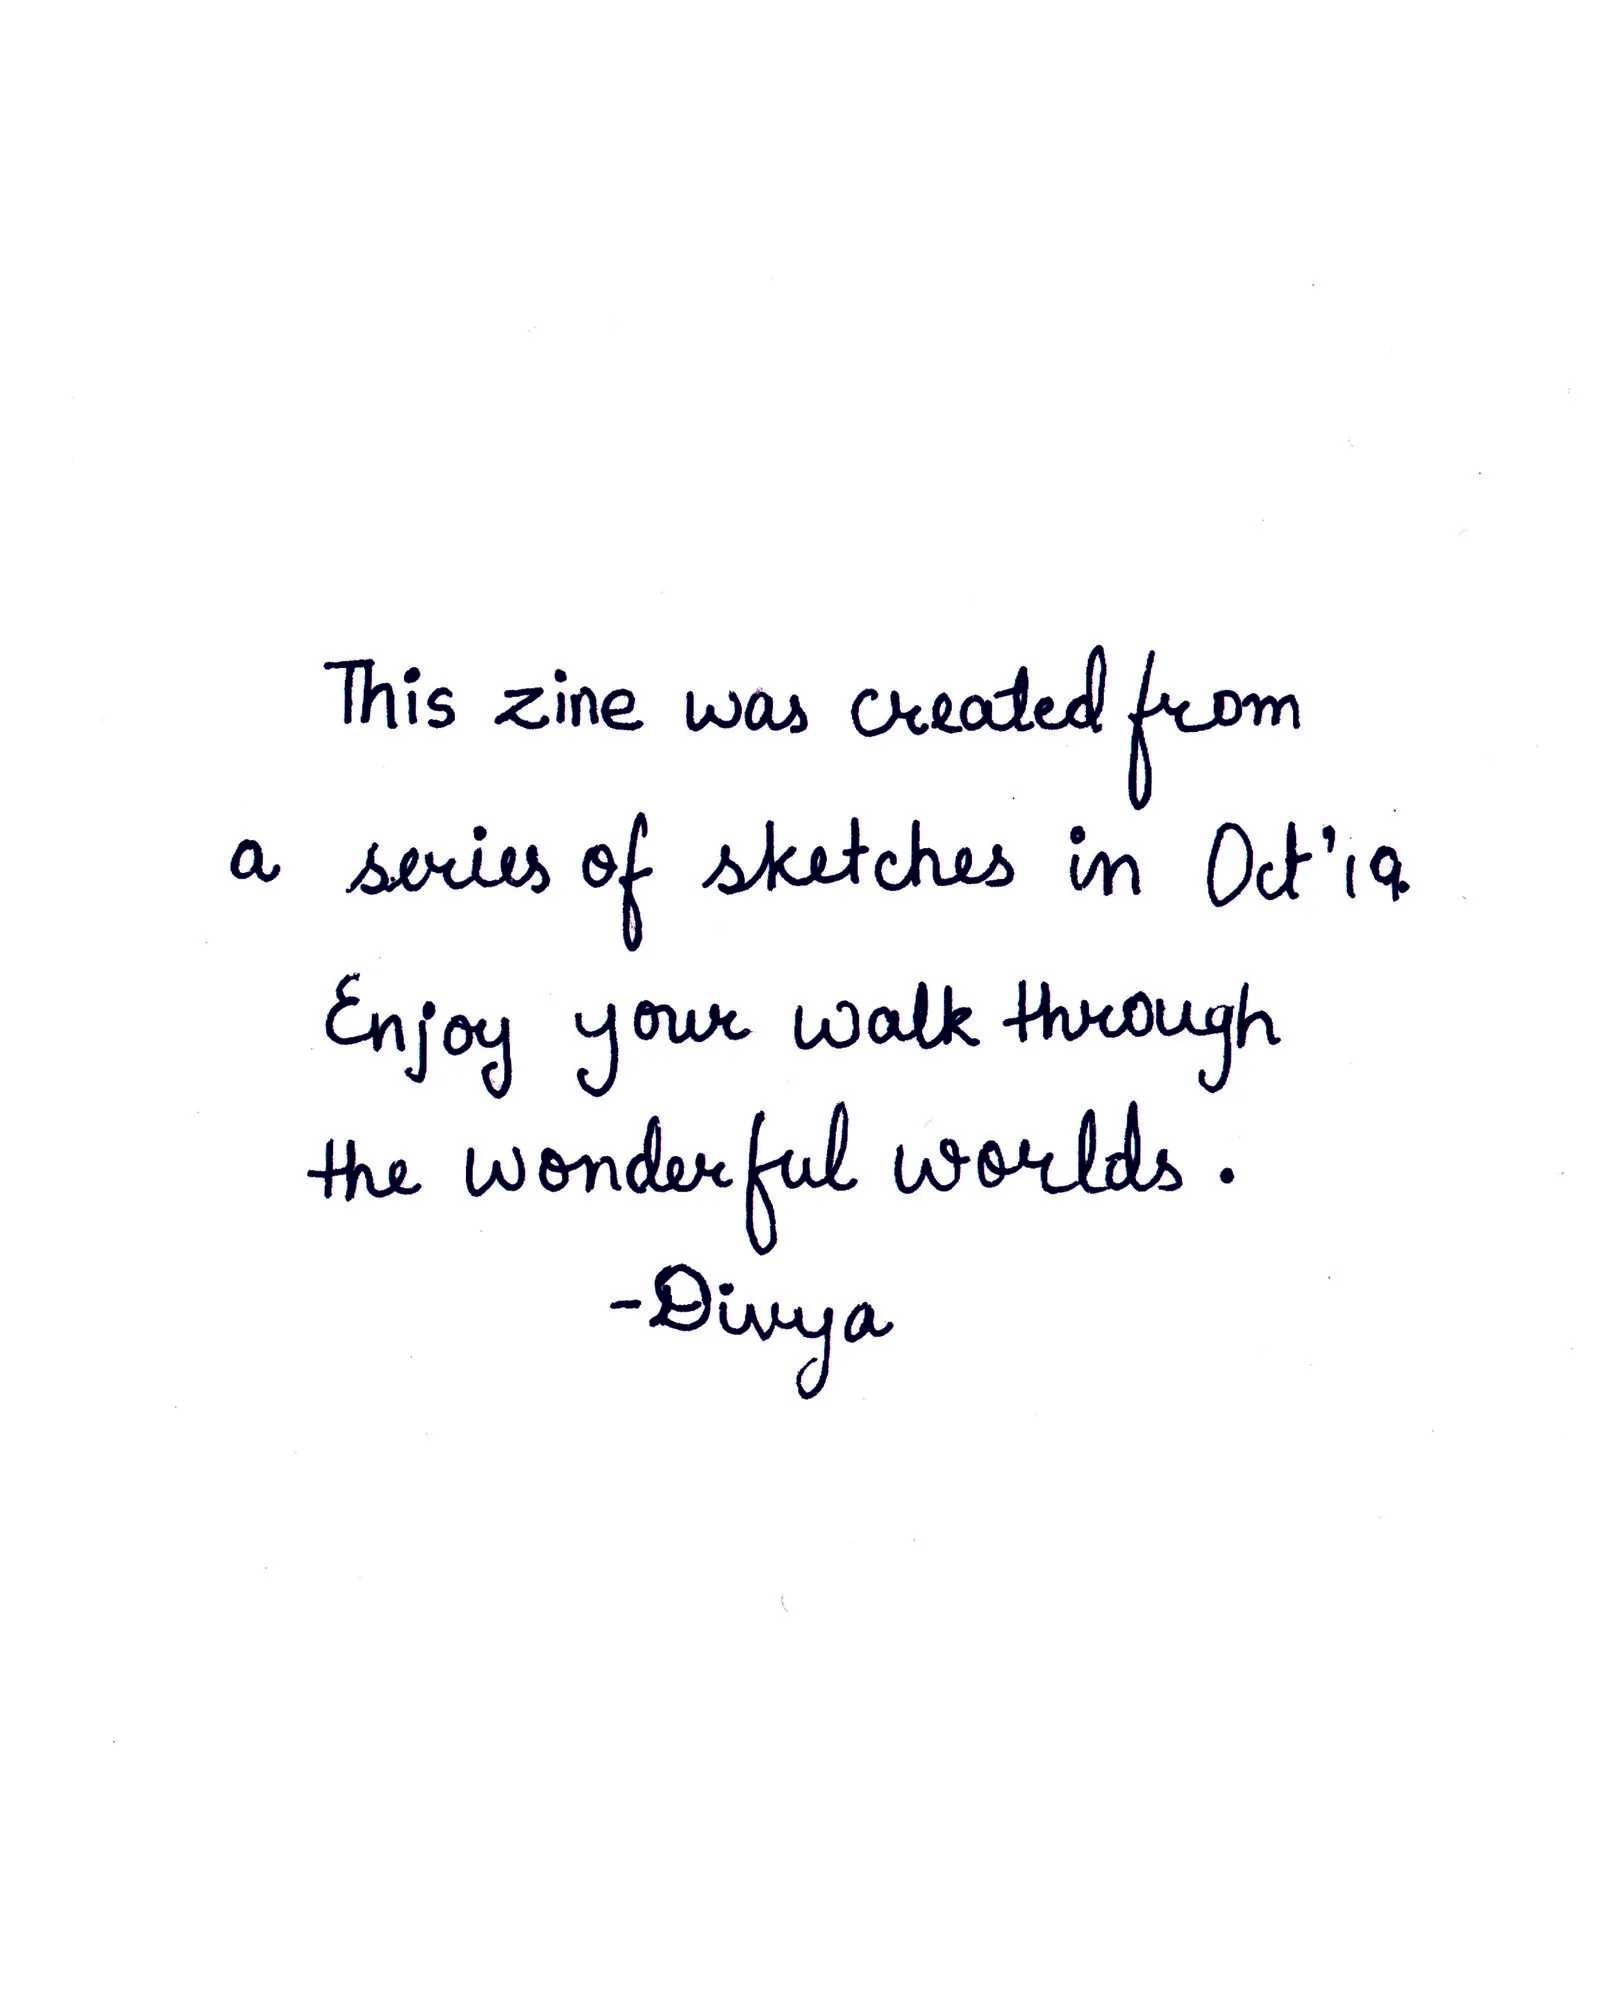 This zine was created from
a series of sketches in Oct'19.
Enjoy your walk through
the wonderful worlds.
-Divya